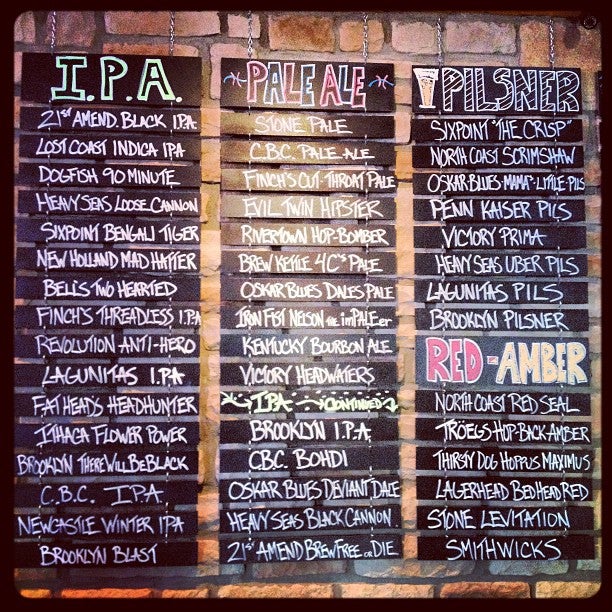 I.P.A.
21ST AMEND. BLACK IPA
LOST COAST INDICA IPA
DOGFISH 90 MINUTE
HEAVY SEAS LOOSE CANNON
SIXPOINT BENGALI TIGER
NEW HOLLAND MAD HATTER
BELL'S TWO HEARTED
FINCH'S THREADLESS I.P.A
REVOLUTION ANTI-HERO
LAGUNITAS I.P.A
FAT HEADS HEADHUNTER
ITHACA FLOWER POWER
BROOKLYN THERE WILL BE BLACK
C.B.C. IPA
NEWCASTLE WINTER IPA
BROOKLYN BLAST
PALE ALE
STONE PALE
C.B.C. PALE ALE
FINCH'S CUT-THROAT PALE
EVIL TWIN HIPSTER
RIVERTOWN HOP-BOMBER
BREW KETTLE 4C'S PALE
OSKAR BLUES DALES PALE
IRON FIST NELSON THE imPALEer
KENTUCKY BOURBON ALE
VICTORY HEADWATERS
IPA CONTINUED
BROOKLYN I.P.A.
CBC BOHDI
OSKAR BLUES DEVIANT DALE
HEAVY SEAS BLACK CANNON
21ST AMEND BREW FREE OR DIE
PILSNER
SIXPOINT "THE CRISP"
NORTH COAST SCRIMSHAW
OSKAR BLUES-MAMA-LITTLE-PILS
PENN KAISER PILS
VICTORY PRIMA
HEAVY SEAS UBER PILS
LAGUNITAS PILS
BROOKLYN PILSNER
RED-AMBER
NORTH COAST RED SEAL
TRÖEGS HOP-BACK-AMBER
THIRSTY DOG HOPPUS MAXIMUS
LAGERHEAD BED HEAD RED
STONE LEVITATION
SMITHWICKS